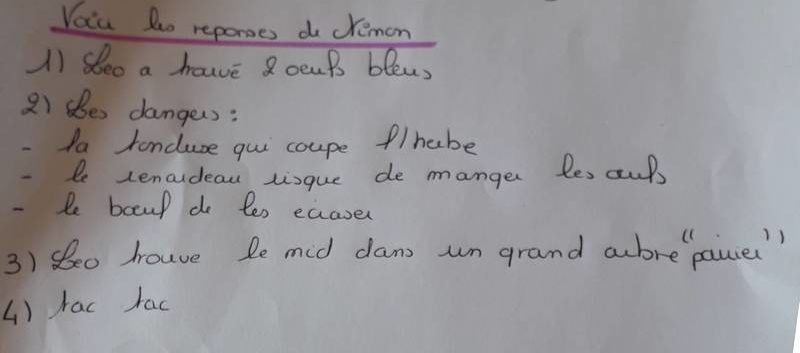 Voici les reponses de Simon
1) Leo a trouvé 2 oeufs bleus
2) Les dangers :
- la tonduse qui coupe l'herbe
- le renardeau risque de manger les œufs
- le bœuf de les ecraser
3) Leo trouve le nid dans un grand arbre "pannier"
4) tac tac